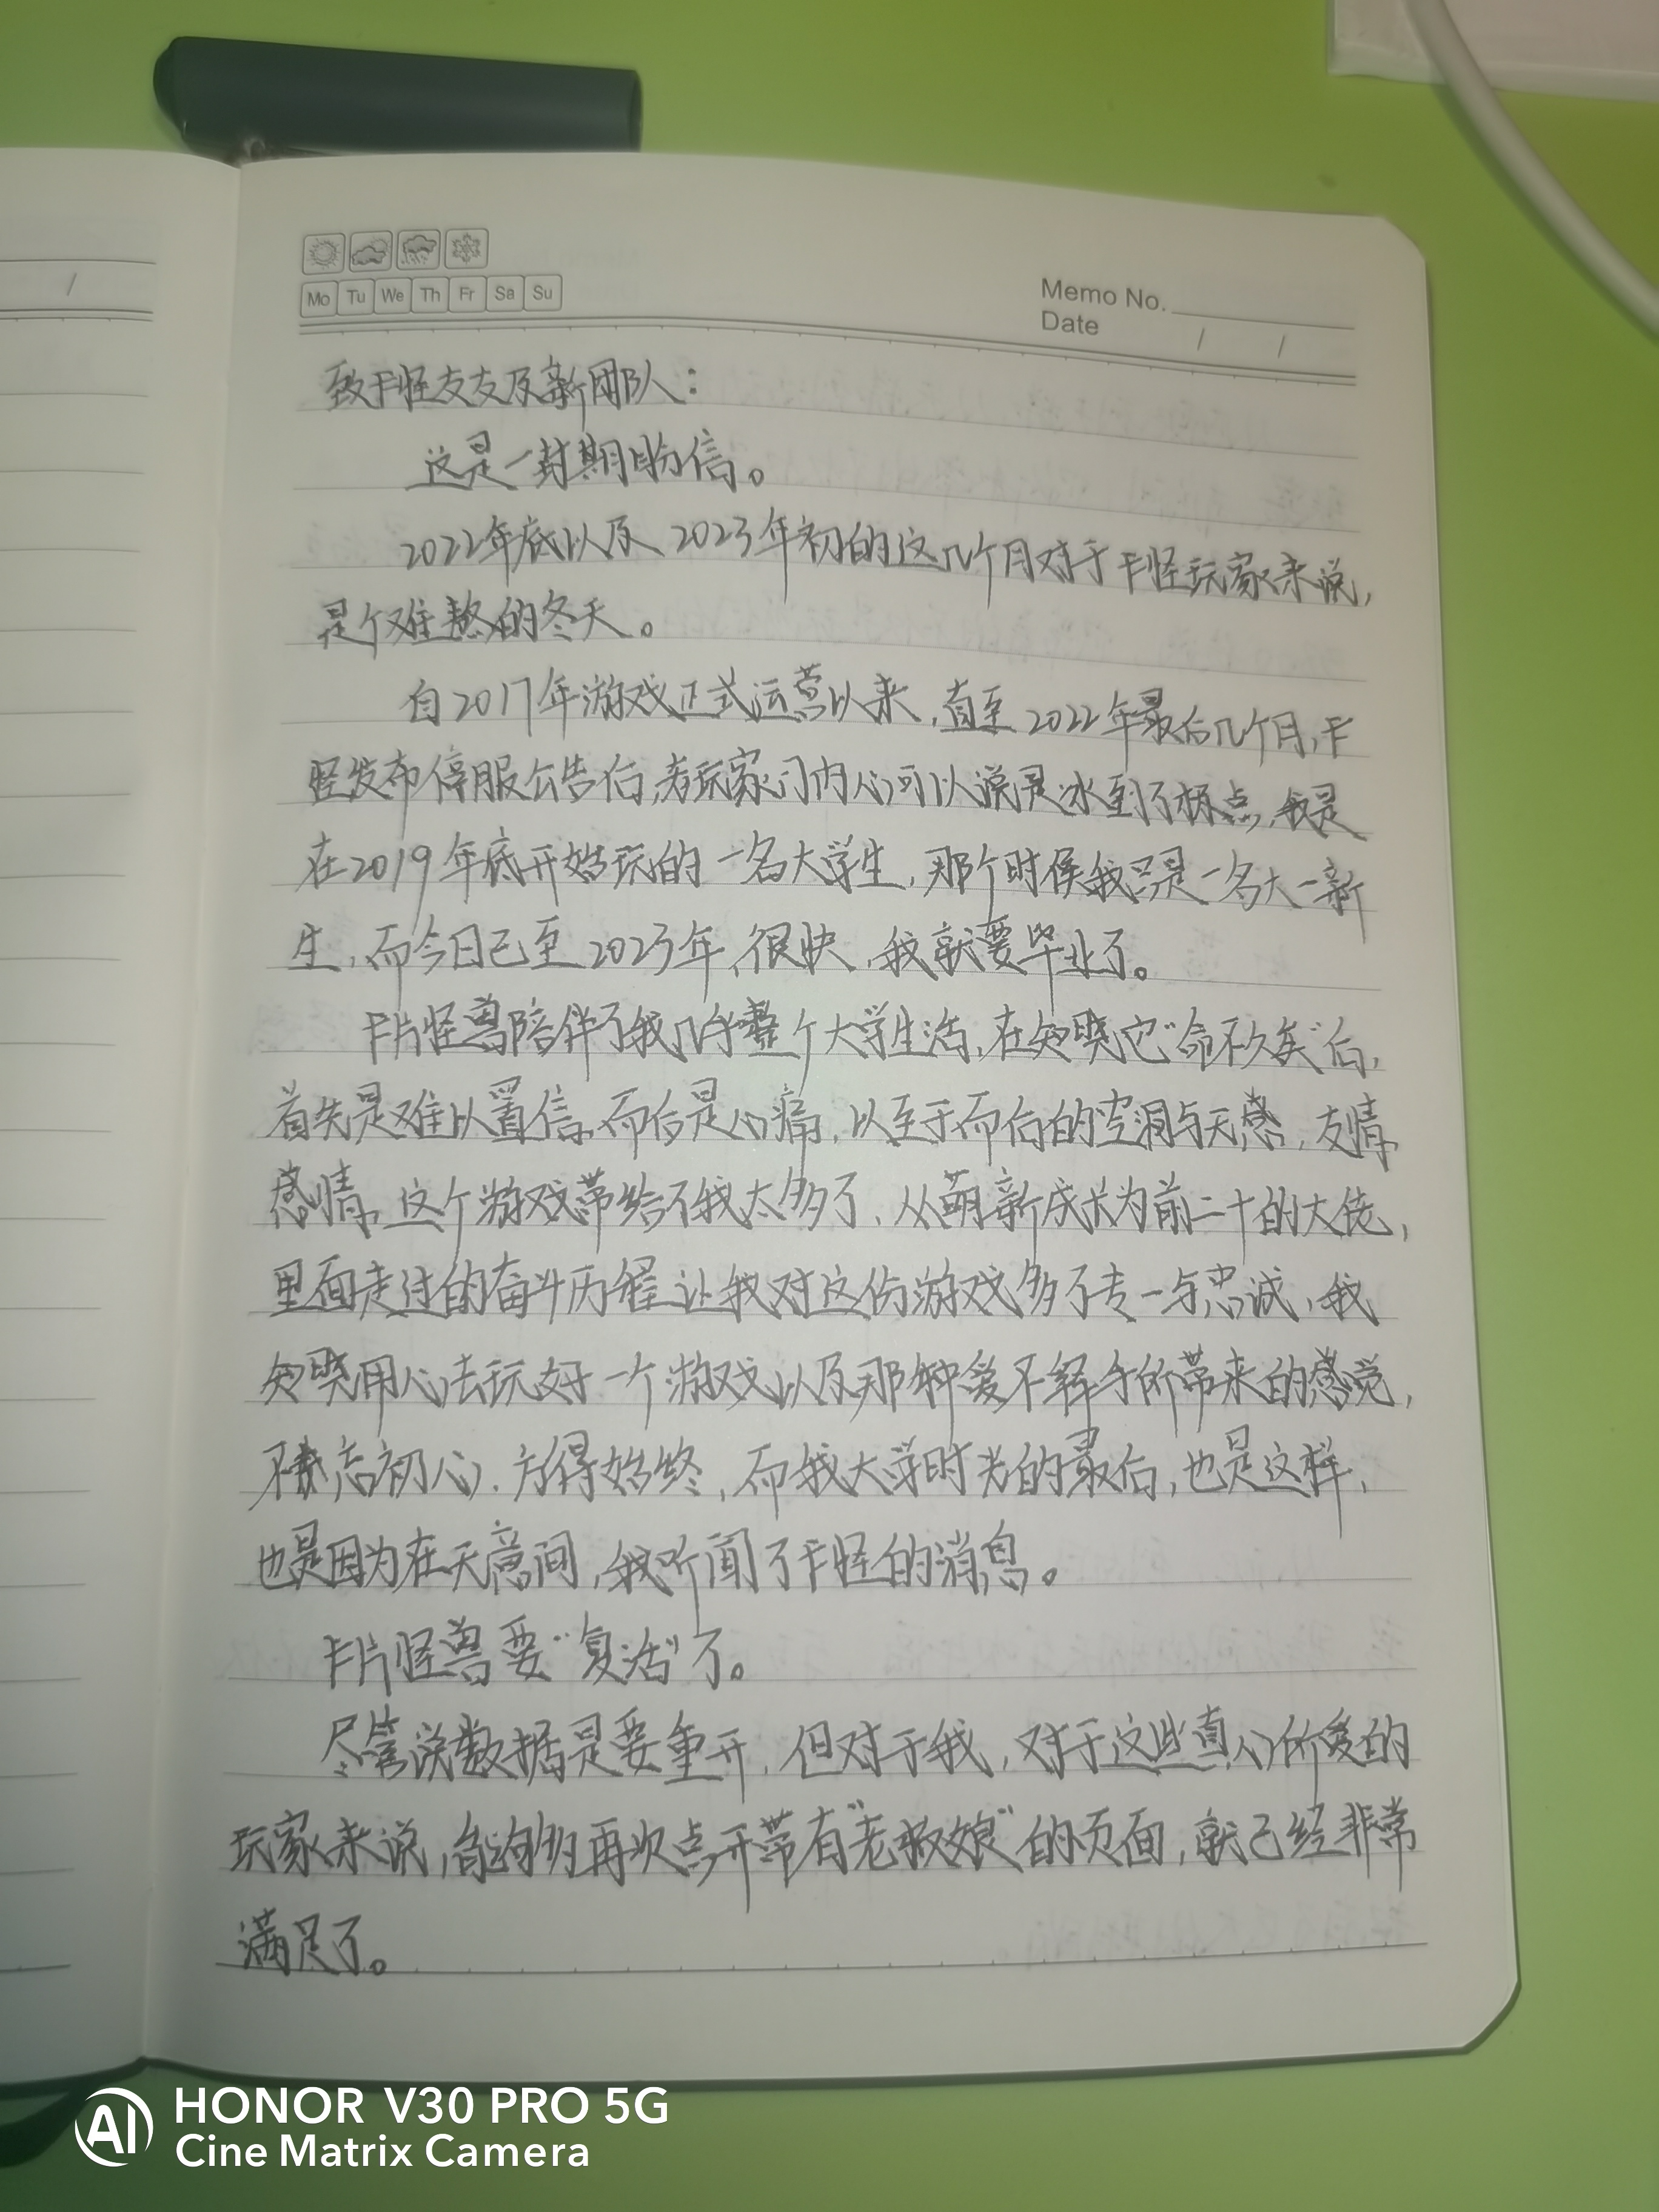 Mo Tu We Th Fr Sa Su
Memo No.
Date / /
/
致卡怪友友及新团队：
这是一封期盼信。
2022年底以及2023年初的这几个月对于卡怪玩家来说，
是个难熬的冬天。
自2017年游戏正式运营以来，直至2022年最后几个月，卡
怪发布停服公告后，老玩家们内心可以说是冰到了极点，我是
在2019年底开始玩的一名大学生，那个时候我只是一名大一新
生，而今日已至2023年，很快，我就要毕业了。
卡片怪兽陪伴了我几乎整个大学生活，在知晓它“命不久矣”后，
首先是难以置信，而后是心痛，以至于而后的空洞与无感，友情，
感情，这个游戏带给了我太多了，从萌新成长为前二十的大佬，
里面走过的奋斗历程让我对这份游戏多了专一与忠诚，我
知晓用心去玩好一个游戏以及那种爱不释手所带来的感觉，
不忘初心，方得始终，而我大学时光的最后，也是这样，
也是因为在无意间，我听闻了卡怪的消息。
卡片怪兽要“复活”了。
尽管说数据是要重开，但对于我，对于这些真心所爱的
玩家来说，能够再次点开带有“老板娘”的页面，就已经非常
满足了。
AI HONOR V30 PRO 5G
Cine Matrix Camera